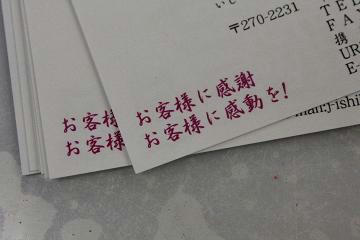 いし
〒270-2231
TEL
FAX
携
UR
E-
mail:j-ishi
お客様に感謝
お客様に感動を!
お客様
お客様